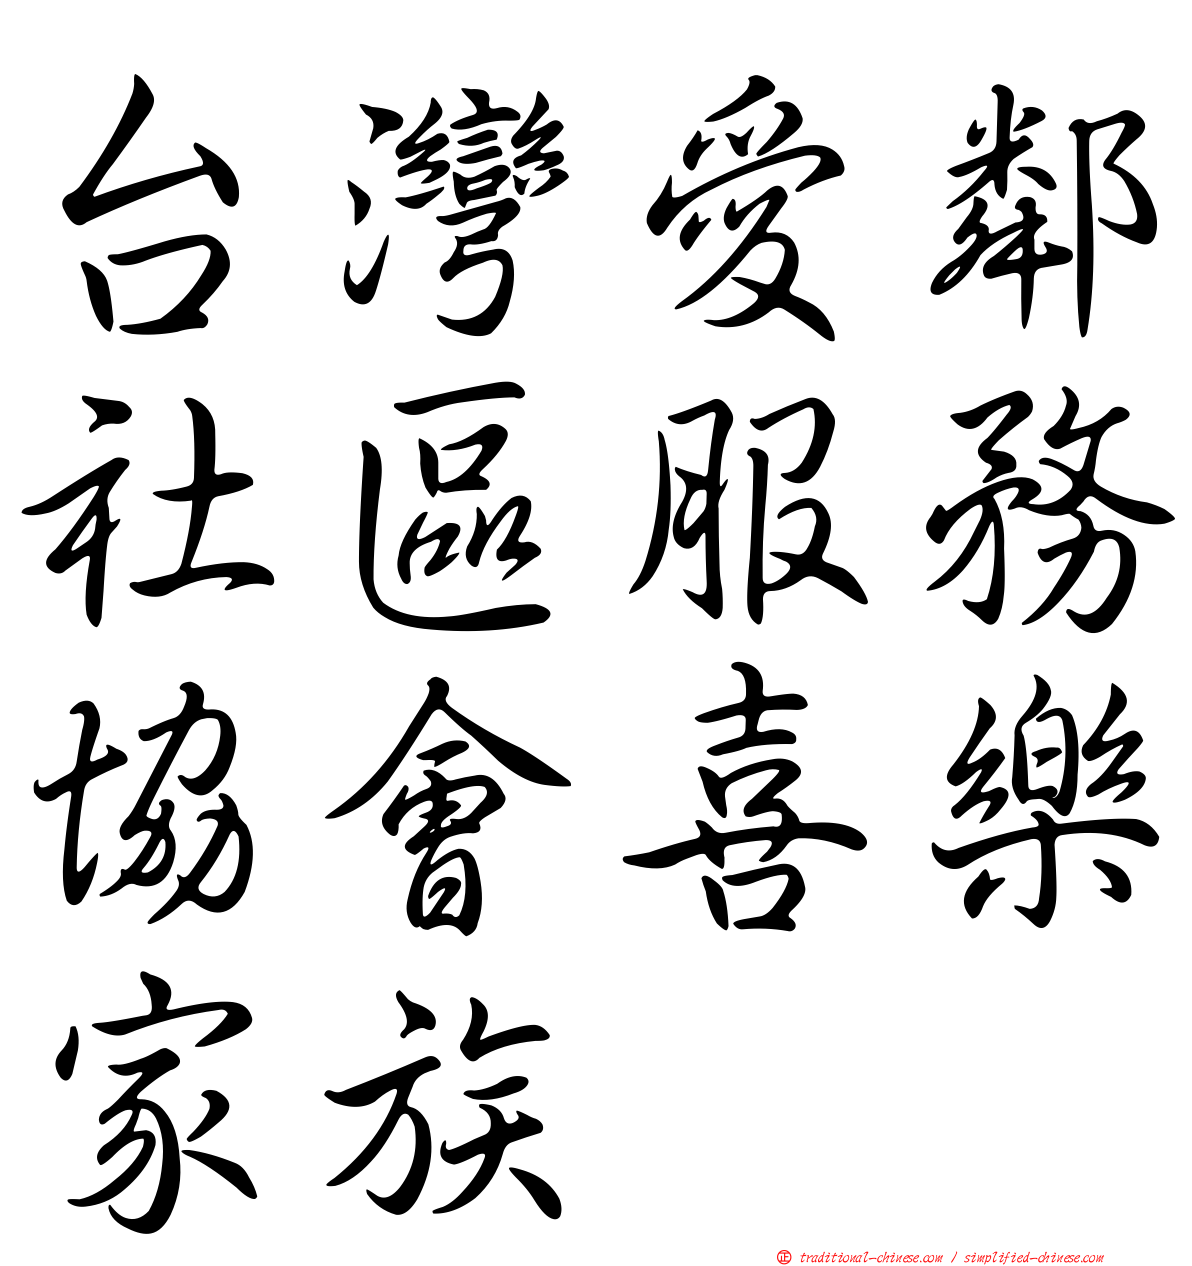 台灣愛鄰
社區服務
協會喜樂
家族
㊣ traditional-chinese.com / simplified-chinese.com